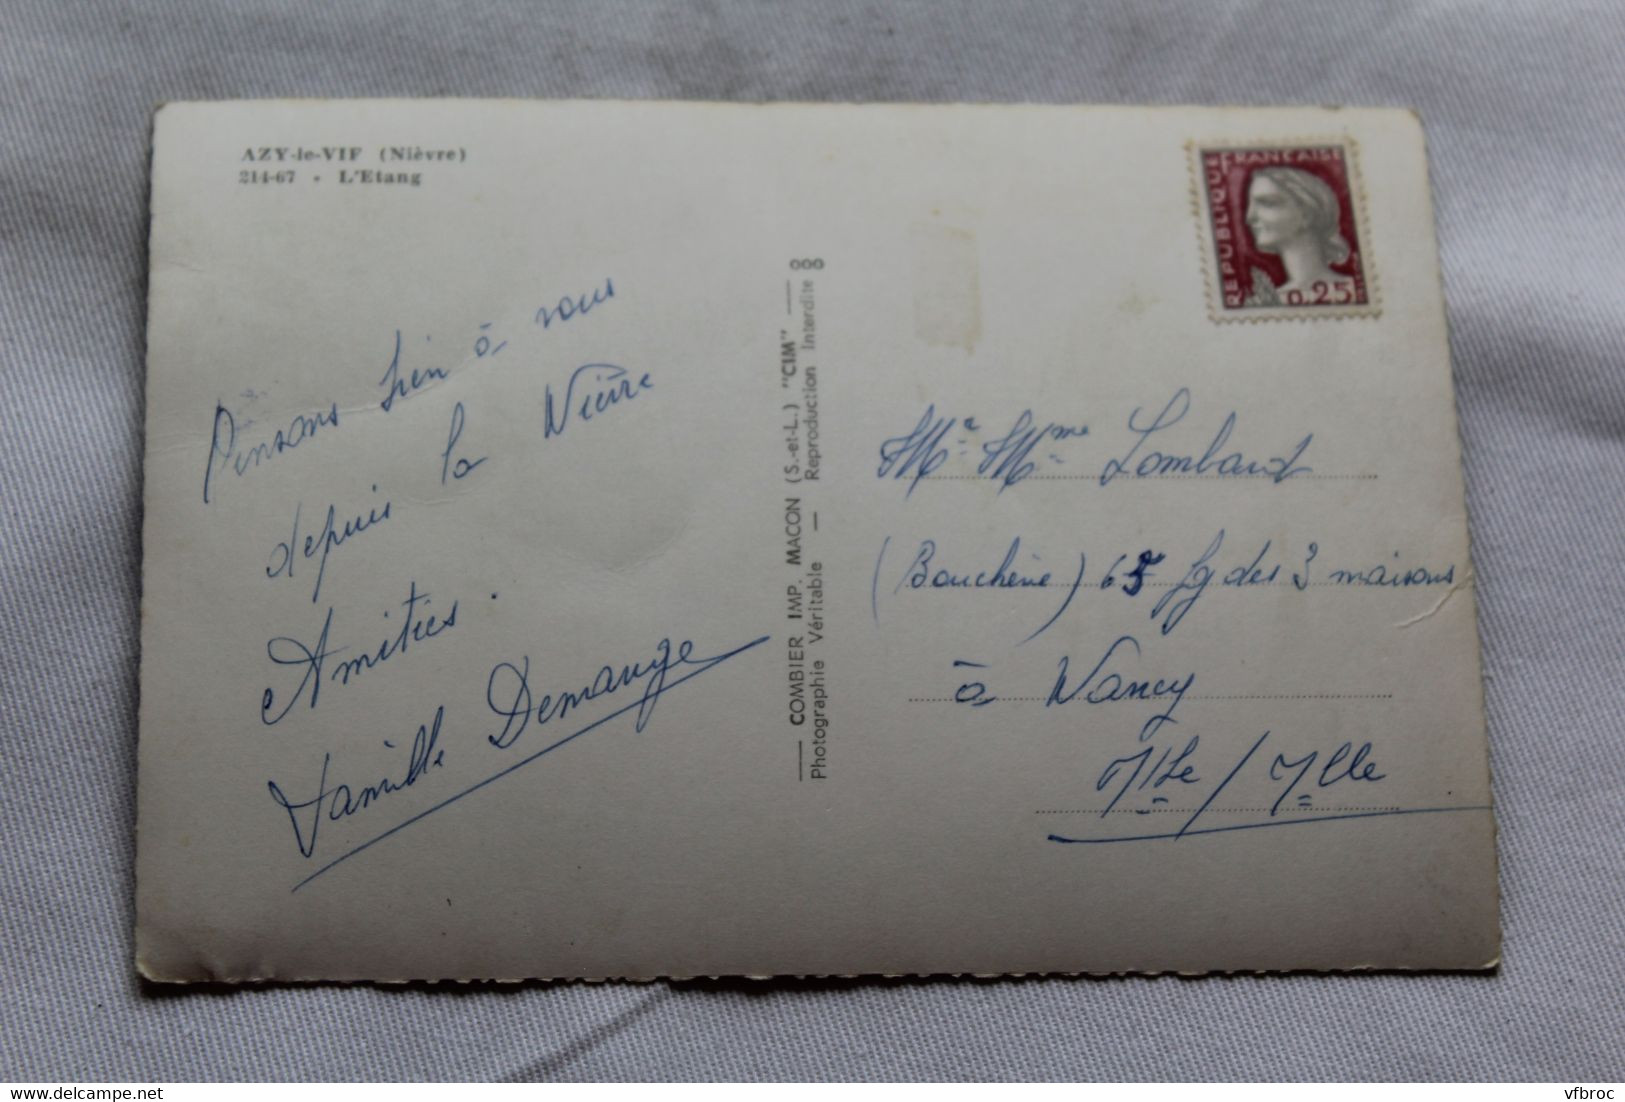 AZY-le-VIF (Nièvre)
214-67 - L'Etang
Pensons bien à vous
depuis la Nièvre
Amitiés.
Famille Demange
COMBIER IMP. MACON (S.-et-L.) "CIM"
Photographie Véritable — Reproduction Interdite
000
REPUBLIQUE FRANÇAISE
0,25
Mr Mme Lombard
(Boucherie) 65 fg des 3 maisons
à Nancy
Mlle / Mlle
delcampe.net
vfbroc